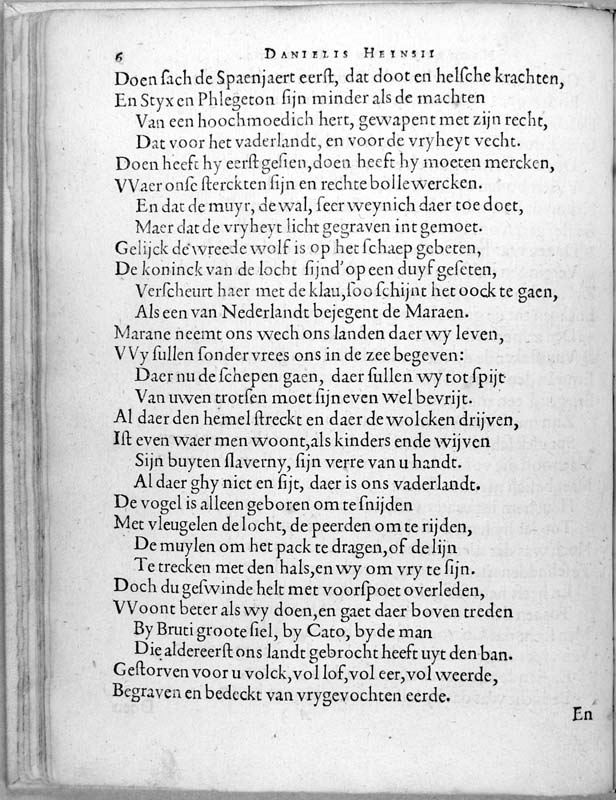 6 DANIELIS HEINSII
Doen sach de Spaenjaert eerst, dat doot en helsche krachten,
En Styx en Phlegeton sijn minder als de machten
Van een hoochmoedich hert, gewapent met zijn recht,
Dat voor het vaderlandt, en voor de vryheyt vecht.
Doen heeft hy eerst gesien, doen heeft hy moeten mercken,
VVaer onse sterckten sijn en rechte bollewercken.
En dat de muyr, de wal, seer weynich daer toe doet,
Maer dat de vryheyt licht gegraven int gemoet.
Gelijck de wreede wolf is op het schaep gebeten,
De koninck van de locht sijnd' op een duyf geseten,
Verscheurt haer met de klau, soo schijnt het oock te gaen,
Als een van Nederlandt bejegent de Maraen.
Marane neemt ons wech ons landen daer wy leven,
VVy sullen sonder vrees ons in de zee begeven:
Daer nu de schepen gaen, daer sullen wy tot spijt
Van uwen trotsen moet sijn even wel bevrijt.
Al daer den hemel streckt en daer de wolcken drijven,
Ist even waer men woont, als kinders ende wijven
Sijn buyten slaverny, sijn verre van u handt.
Al daer ghy niet en sijt, daer is ons vaderlandt.
De vogel is alleen geboren om te snijden
Met vleugelen de locht, de peerden om te rijden,
De muylen om het pack te dragen, of de lijn
Te trecken met den hals, en wy om vry te sijn.
Doch du geswinde helt met voorspoet overleden,
VVoont beter als wy doen, en gaet daer boven treden
By Bruti groote siel, by Cato, by de man
Die aldereerst ons landt gebrocht heeft uyt den ban.
Gestorven voor u volck, vol lof, vol eer, vol weerde,
Begraven en bedeckt van vrygevochten eerde.
En